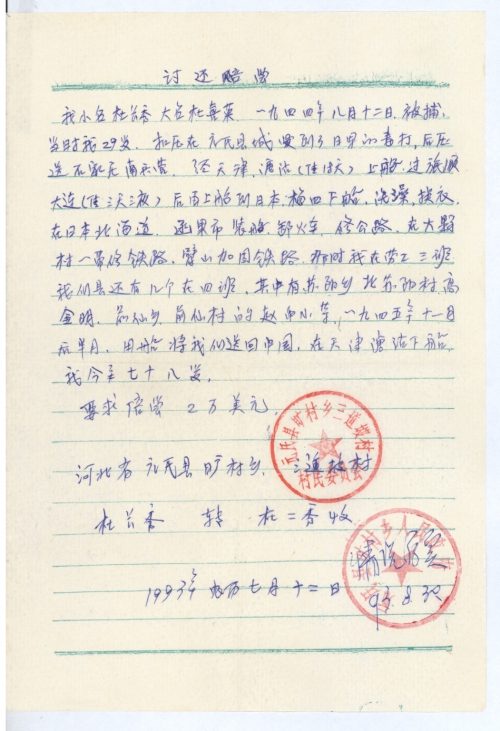 讨还赔偿
我小名杜谷香 大名杜喜英 一九四四年八月十二日被捕,
当时我29岁. 扣压在元氏县城 要到 日里的 村, 后压
送石家庄南兵营. 经天津, 溏沽(住18天) 上船. 过旅顺
大连(住三天三夜) 后再上船到日本. 下船, 洗澡, 换衣.
在日本北海道. 市装船卸火车, 修公路. 在大
村一带修铁路. 劈山加固铁路. 那时我在劳工三班.
我们县还有几个在四班, 其中有苏阳乡北苏阳村高
金明. 前仙乡前仙村的赵 小等, 一九四五年十一月
后半月. 用船将我们送回中国, 在天津溏沽下船,
我今年七十八岁.
要求赔偿 2万美元.
河北省元氏县旷村乡. 三道 村
杜谷香 转 杜二香收
1993年农历七月十二日
93.8.30
元氏县旷村乡三道 村
村民委员会
村乡人民政府